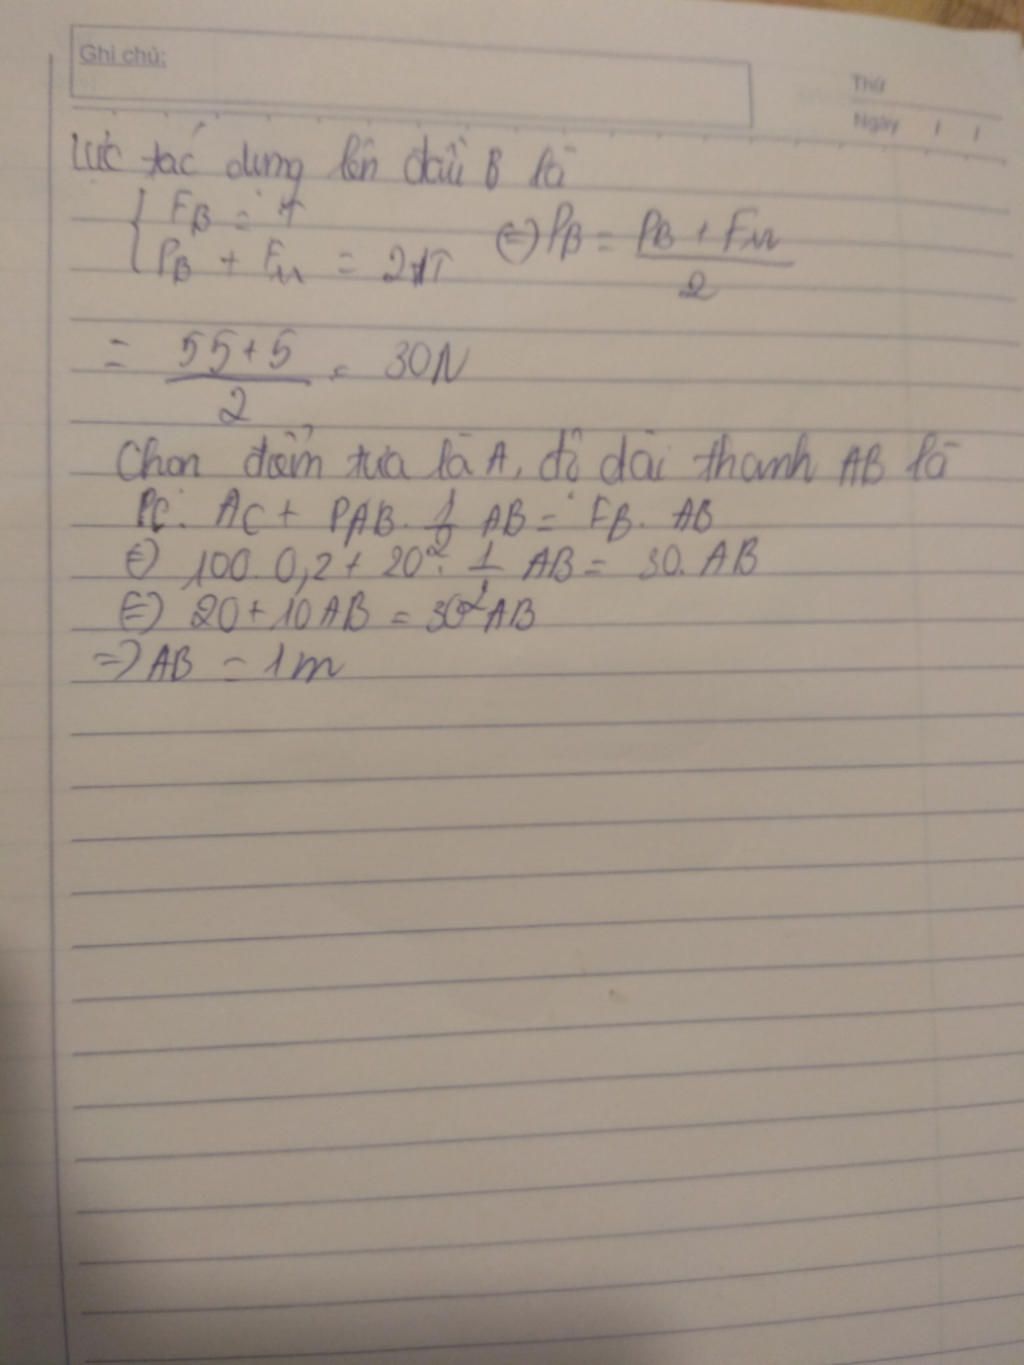 Ghi chú:
Thứ
Ngày / /
Lực tác dụng lên đầu B là
{ FB = T
PB + Fu = 2T (=) PB = PB + Fu / 2
= 55+5 / 2 = 30N
Chọn điểm tựa là A, độ dài thanh AB là
PC. AC + PAB. 1/2 AB = FB. AB
(=) 100. 0,2 + 20. 1/2 AB = 30. AB
(=) 20 + 10AB = 30AB
=) AB = 1m